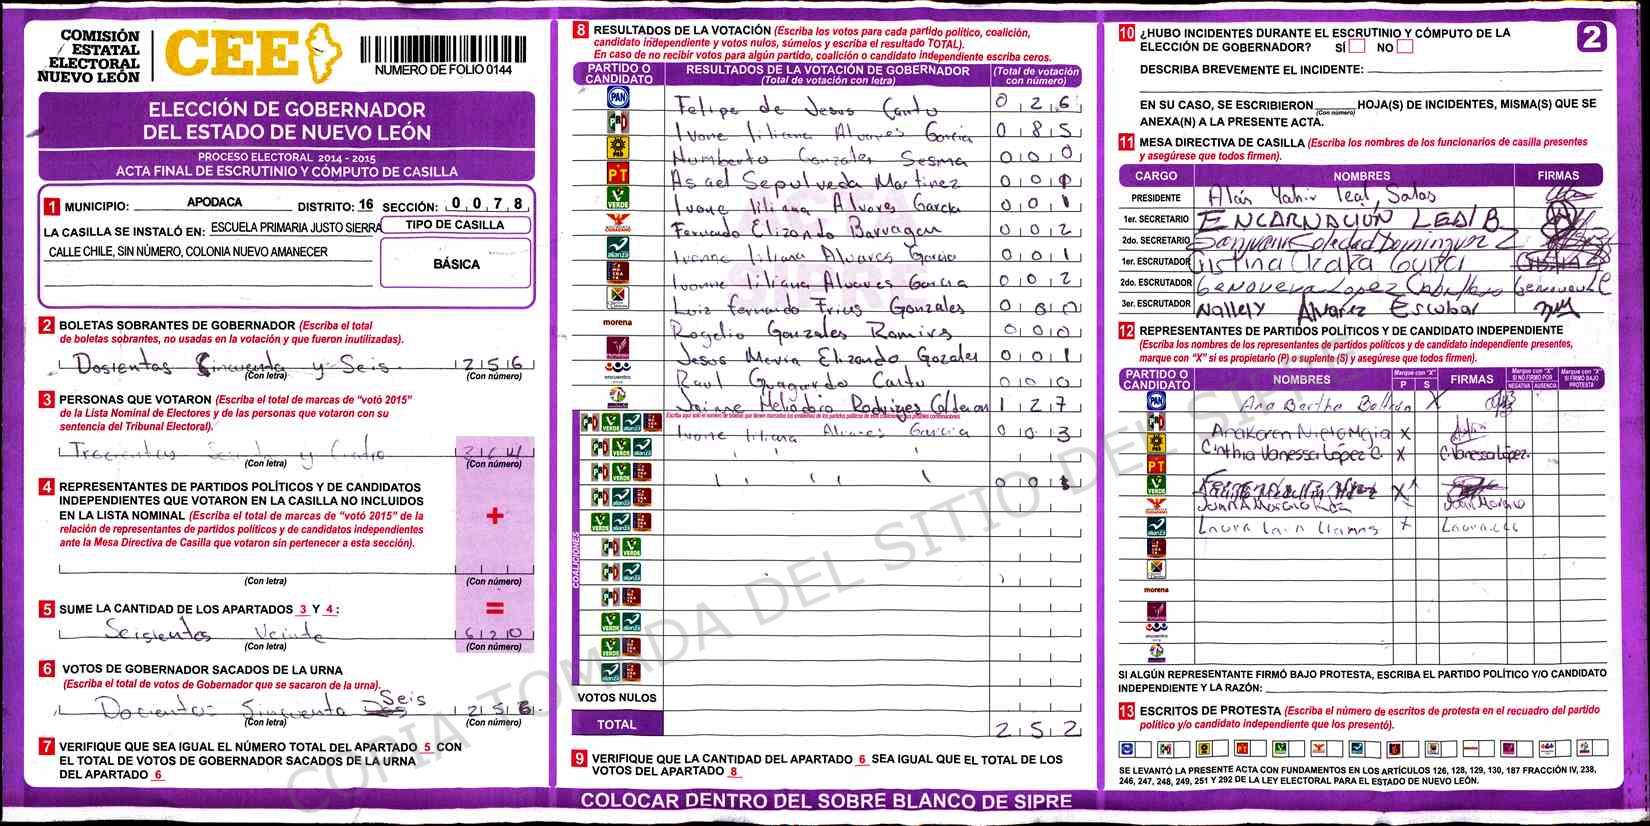 COMISIÓN
ESTATAL
ELECTORAL
NUEVO LEÓN
CEE
NUMERO DE FOLIO 0144
ELECCIÓN DE GOBERNADOR
DEL ESTADO DE NUEVO LEÓN
PROCESO ELECTORAL 2014 - 2015
ACTA FINAL DE ESCRUTINIO Y CÓMPUTO DE CASILLA
1 MUNICIPIO: APODACA DISTRITO: 16 SECCIÓN: 0 0 7 8
LA CASILLA SE INSTALÓ EN: ESCUELA PRIMARIA JUSTO SIERRA
CALLE CHILE, SIN NÚMERO, COLONIA NUEVO AMANECER
TIPO DE CASILLA
BÁSICA
2 BOLETAS SOBRANTES DE GOBERNADOR (Escriba el total
de boletas sobrantes, no usadas en la votación y que fueron inutilizadas).
Dosientas Sincuenta y Seis 2 5 6
(Con letra) (Con número)
3 PERSONAS QUE VOTARON (Escriba el total de marcas de “votó 2015”
de la Lista Nominal de Electores y de las personas que votaron con su
sentencia del Tribunal Electoral).
y 3 6 4
(Con letra) (Con número)
4 REPRESENTANTES DE PARTIDOS POLÍTICOS Y DE CANDIDATOS
INDEPENDIENTES QUE VOTARON EN LA CASILLA NO INCLUIDOS
EN LA LISTA NOMINAL (Escriba el total de marcas de “votó 2015” de la
relación de representantes de partidos políticos y de candidatos independientes
ante la Mesa Directiva de Casilla que votaron sin pertenecer a esta sección).
+
(Con letra) (Con número)
5 SUME LA CANTIDAD DE LOS APARTADOS 3 Y 4:
=
Seisientos Veinte 6 2 0
(Con letra) (Con número)
6 VOTOS DE GOBERNADOR SACADOS DE LA URNA
(Escriba el total de votos de Gobernador que se sacaron de la urna).
Docientos Sincuenta Seis 2 5 6
(Con letra) (Con número)
7 VERIFIQUE QUE SEA IGUAL EL NÚMERO TOTAL DEL APARTADO 5 CON
EL TOTAL DE VOTOS DE GOBERNADOR SACADOS DE LA URNA
DEL APARTADO 6
8 RESULTADOS DE LA VOTACIÓN (Escriba los votos para cada partido político, coalición,
candidato independiente y votos nulos, súmelos y escriba el resultado TOTAL).
En caso de no recibir votos para algún partido, coalición o candidato independiente escriba ceros.
PARTIDO O CANDIDATO
RESULTADOS DE LA VOTACIÓN DE GOBERNADOR
(Total de votación con letra)
(Total de votación con número)
PAN Felipe de Jesus Cantu 0 2 6
PRI Ivone liliana Alvares Garcia 0 8 5
PRD Humberto Gonzales Sesma 0 0 0
PT Asael Sepulveda Martinez 0 0
VERDE Ivone liliana Alvares Garcia 0 0 1
Fernando Elizondo Barragan 0 0 2
alianza Ivonne liliana Alvares Garcia 0 0 1
Ivonne liliana Alvares Garcia 0 0 2
Luiz Fernando Frius Gonzales 0 0 0
morena Rogelio Gonzales Ramires 0 0 0
Jesus Maria Elizondo Gozales 0 0 1
encuentro Raul Guagardo Cantu 0 0 0
Jaime Heliodoro Rodrigez Calderon 1 2 7
Ivone liliana Alvares Garcia 0 0 3
0 0
COALICIONES
VOTOS NULOS
TOTAL 2 5 2
9 VERIFIQUE QUE LA CANTIDAD DEL APARTADO 6 SEA IGUAL QUE EL TOTAL DE LOS
VOTOS DEL APARTADO 8
COLOCAR DENTRO DEL SOBRE BLANCO DE SIPRE
2
10 ¿HUBO INCIDENTES DURANTE EL ESCRUTINIO Y CÓMPUTO DE LA
ELECCIÓN DE GOBERNADOR? SÍ NO
DESCRIBA BREVEMENTE EL INCIDENTE:
EN SU CASO, SE ESCRIBIERON HOJA(S) DE INCIDENTES, MISMA(S) QUE SE
(Con número)
ANEXA(N) A LA PRESENTE ACTA.
11 MESA DIRECTIVA DE CASILLA (Escriba los nombres de los funcionarios de casilla presentes
y asegúrese que todos firmen).
CARGO NOMBRES FIRMAS
PRESIDENTE Alan Yahir leal Salas
1er. SECRETARIO ENCARNACION LEAL B
2do. SECRETARIO Soledad Dominguez
1er. ESCRUTADOR Cristina
2do. ESCRUTADOR Genoveva Lopez Caballero
3er. ESCRUTADOR Nallely Alvarez Escobar
12 REPRESENTANTES DE PARTIDOS POLÍTICOS Y DE CANDIDATO INDEPENDIENTE
(Escriba los nombres de los representantes de partidos políticos y de candidato independiente presentes,
marque con “X” si es propietario (P) o suplente (S) y asegúrese que todos firmen).
PARTIDO O CANDIDATO NOMBRES Marque con “X” P S FIRMAS Marque con “X” SI NO FIRMO POR NEGATIVA AUSENCIA Marque con “X” SI FIRMO BAJO PROTESTA
PAN Ana Bertha Beltran X
Anakaren Nieto Mejia X
Cinthia Vanessa Lopez C. X C. Vanessa Lopez.
PT
VERDE X
Laura X
morena
encuentro
SI ALGÚN REPRESENTANTE FIRMÓ BAJO PROTESTA, ESCRIBA EL PARTIDO POLÍTICO Y/O CANDIDATO
INDEPENDIENTE Y LA RAZÓN:
13 ESCRITOS DE PROTESTA (Escriba el número de escritos de protesta en el recuadro del partido
político y/o candidato independiente que los presentó).
SE LEVANTÓ LA PRESENTE ACTA CON FUNDAMENTOS EN LOS ARTÍCULOS 126, 128, 129, 130, 187 FRACCIÓN IV, 238,
246, 247, 248, 249, 251 Y 292 DE LA LEY ELECTORAL PARA EL ESTADO DE NUEVO LEÓN.
COPIA TOMADA DEL SITIO DEL SIPRE